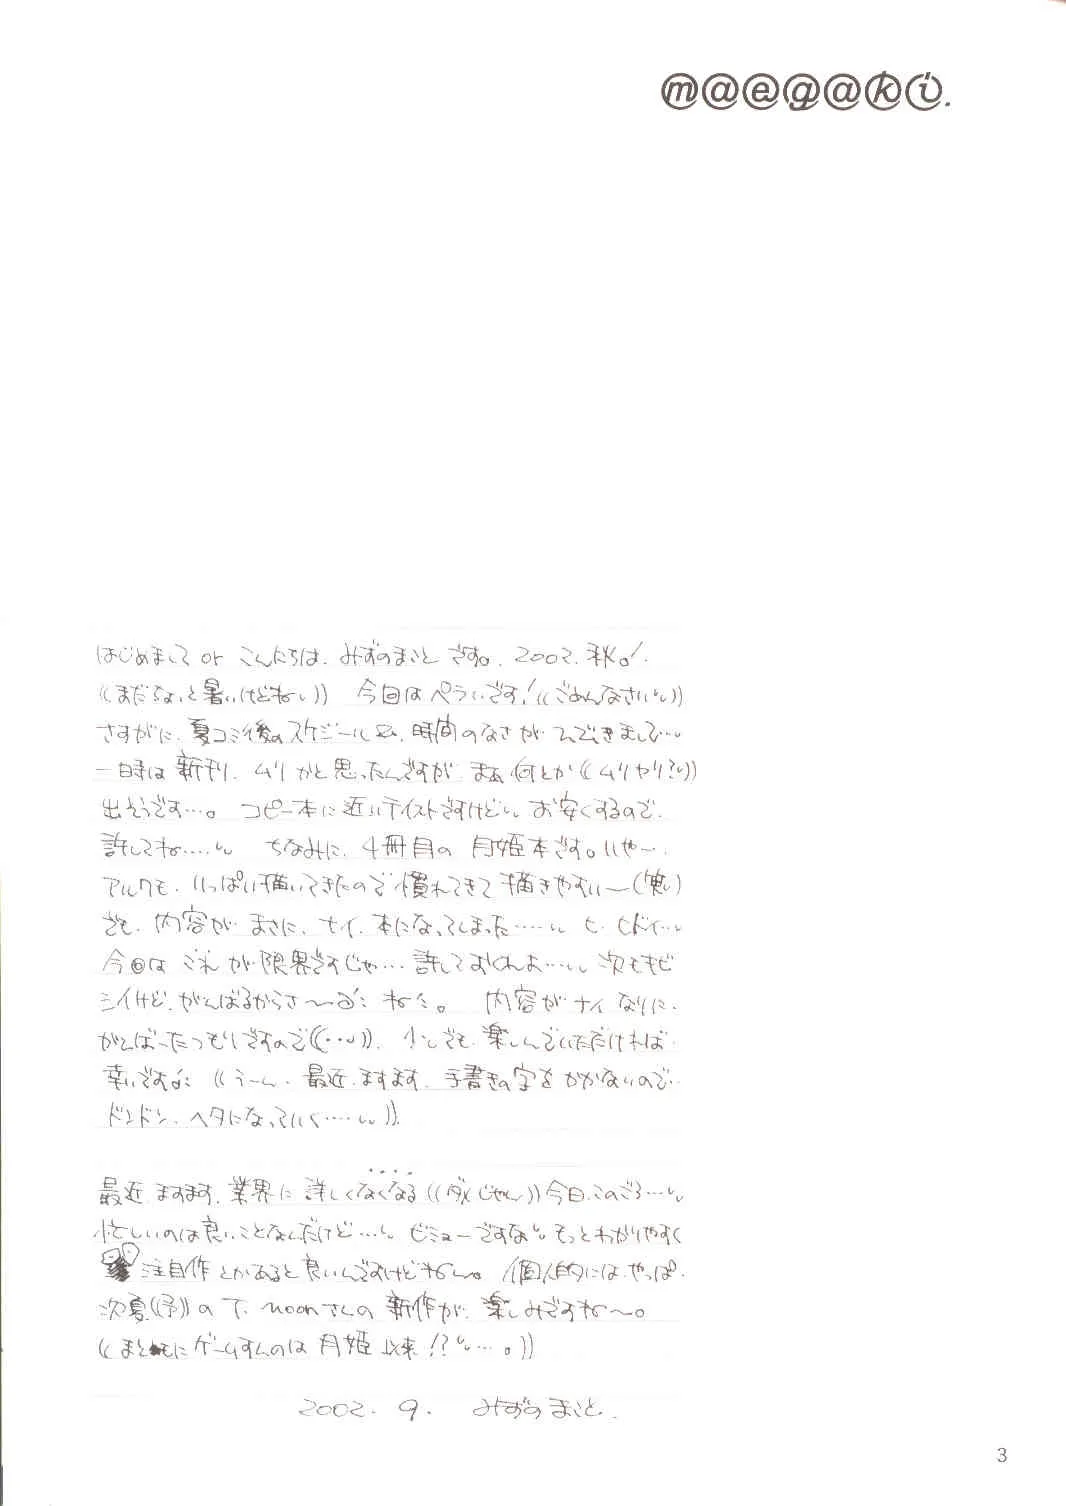 maegaki.
はじめまして or こんにちは、みずのまこと です。2002.秋。!
((まだちょっと暑いけどねぃ)) 今回はペラいです!((ごめんなさいぃ))
さすがに、夏コミ後のスケジール 時間のなさが でてきまして…
一時は新刊、ムリかと思ったんですが まぁ何とか((ムリヤリ?))
出そうです…。コピー本に近いテイストですけどぃ、お安くするので、
許してね…… ちなみに、4冊目の 月姫本です。いやー、
アルクも、いっぱい描いてきたので慣れてきて描きやすい〜(笑)
でも、内容が、まさに、ナイ、本になってしまった…… ヒ、ヒドイ…
今回は これ が 限界ですじゃ… 許しておくれよ… 次もキビ
シイけど、がんばるからさ〜 ね。 内容がナイなりに、
がんばったつもりですので((…))、少しでも、楽しんでいただければ
幸いです ((うーん、最近、ますます、手書きの字をかかないので…
ドンドン、ヘタになっていく……))
最近、ますます、業界に詳しくなくなる((ダメじゃん))今日このごろ…
忙しいのは良いことなんだけど… ビミョーですなぃ もっとわかりやすく
注目作とかあると良いんですけどねぇ〜。個人的には、やっぱ、
次夏((予))のT.moonさんの新作が、楽しみですね〜。
((まともにゲームすんのは月姫以来!?…。))
2002.9. みずのまこと.
3